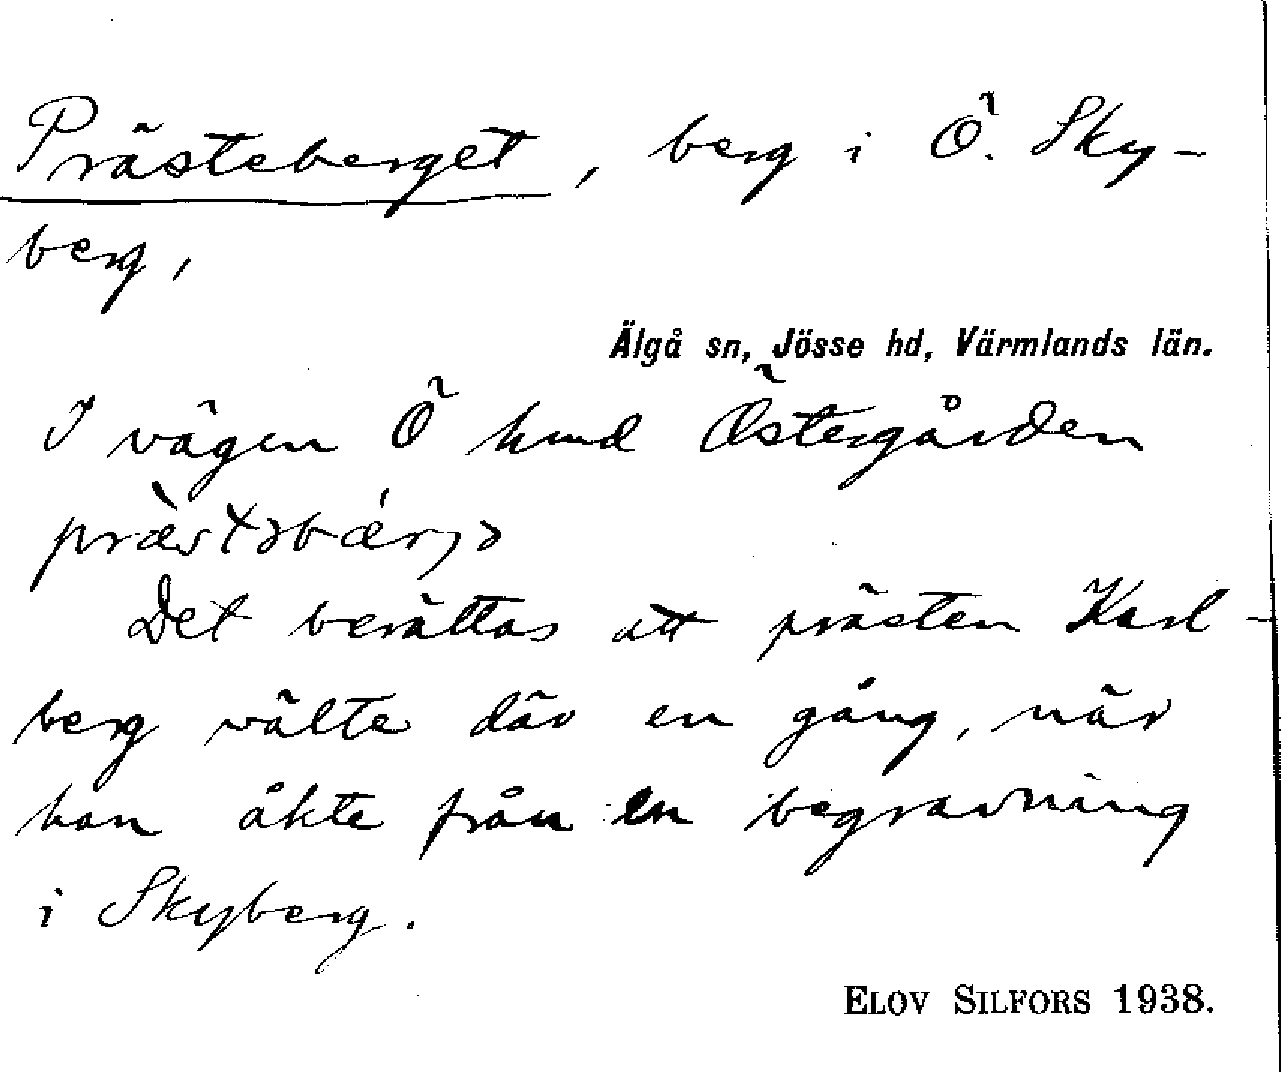 Prästeberget, berg i Ö. Sky-
berg,
Älgå sn, Jösse hd, Värmlands län.
I vägen Ö hund Östergården
Det berättas att prästen Karl-
berg välte där en gång, när
han åkte från en begravning
i Skyberg.
ELOV SILFORS 1938.